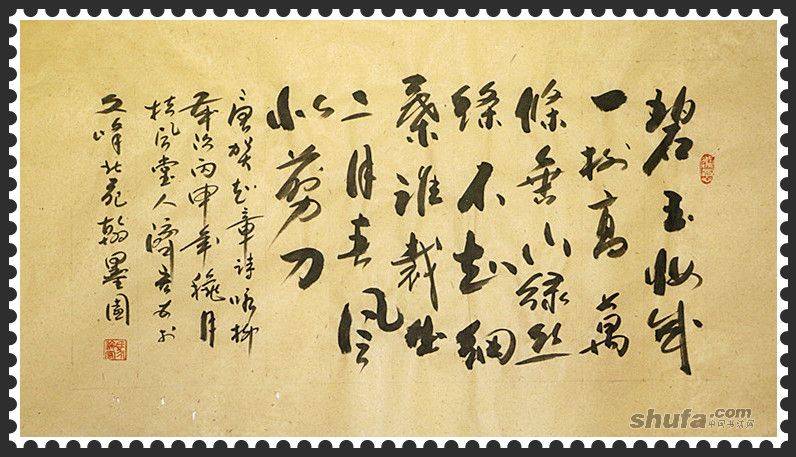 碧玉妝成
一樹高萬
條垂下綠絲
絛不知細
葉誰裁出
二月春風
似剪刀
唐賀知章詩詠柳
歲次丙申年穐月
風堂人濟
文峰北苑翰墨園
shufa.com
中国书法网